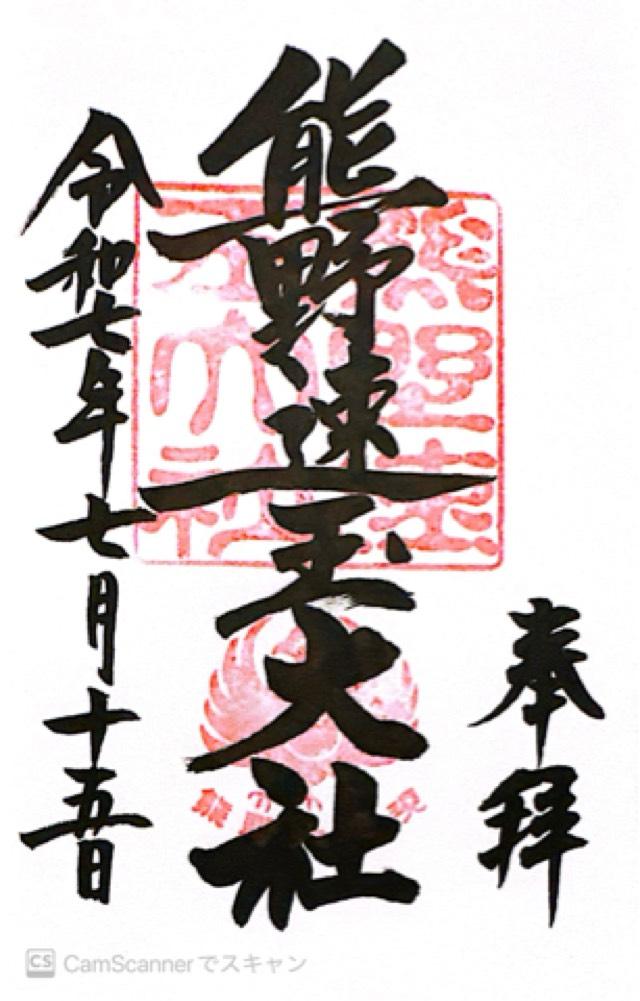 奉拝
熊野速玉大社
令和七年七月十五日
CS CamScannerでスキャン